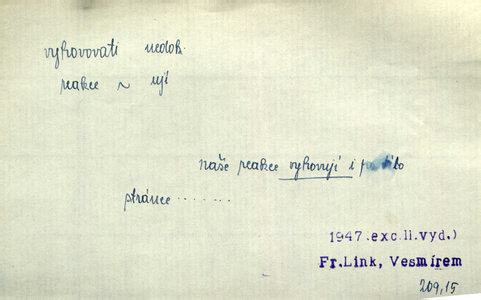 vyhovovati nedok.
reakce ~ ují
naše reakce vyhovují i po této
stránce .......
1947.exc.II.vyd.)
Fr.Link, Vesmírem
209,15